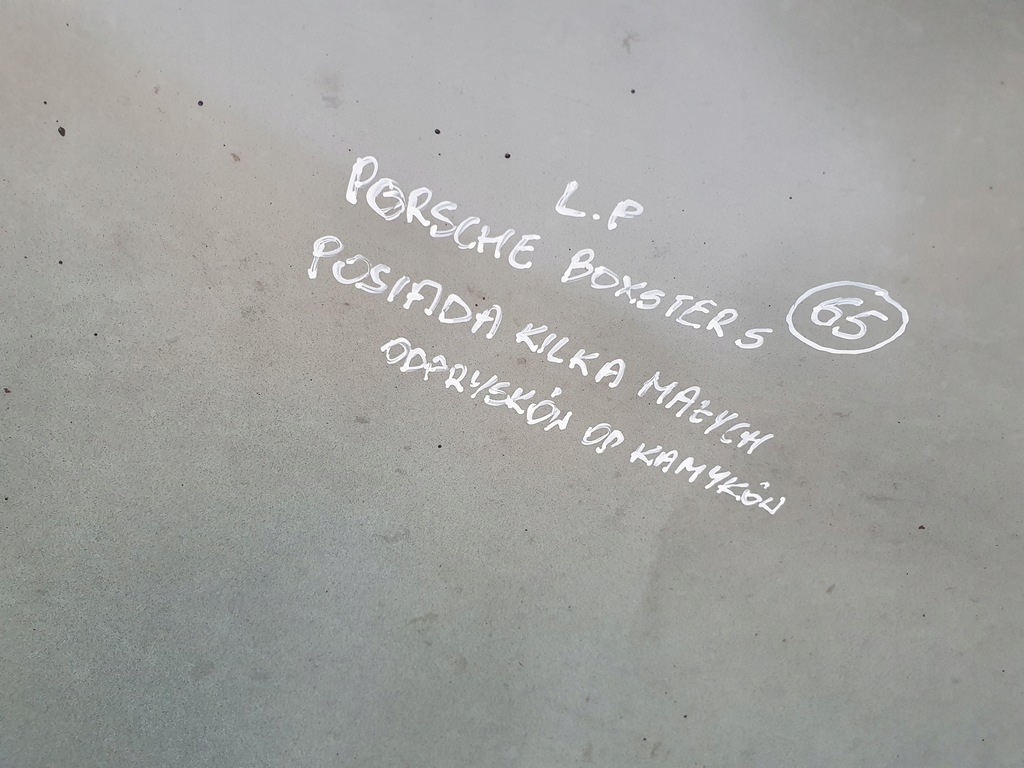 L.P
PORSCHE BOXSTER S 65
POSIADA KILKA MAŁYCH
ODPRYSKÓW OD KAMYKÓW